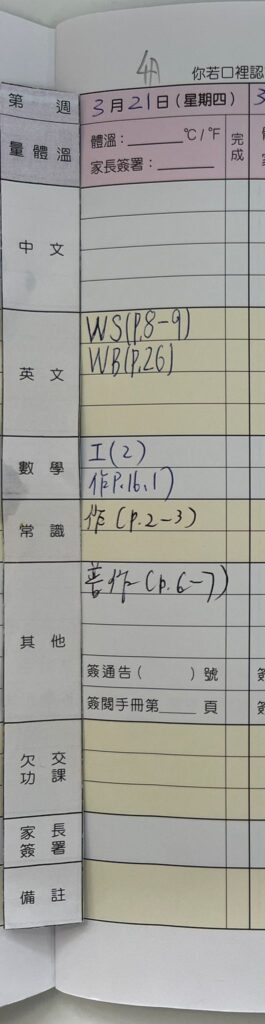 4A
你若口裡認
第 週
3月21日(星期四)
量體溫
體溫：______℃/℉
家長簽署：______
完成
中文
英文
WS(P.8-9)
WB(P.26)
數學
工(2)
作P.16,17
常識
作(P.2-3)
其他
普作(P.6-7)
簽通告( )號
簽閱手冊第____頁
欠交功課
家長簽署
備註